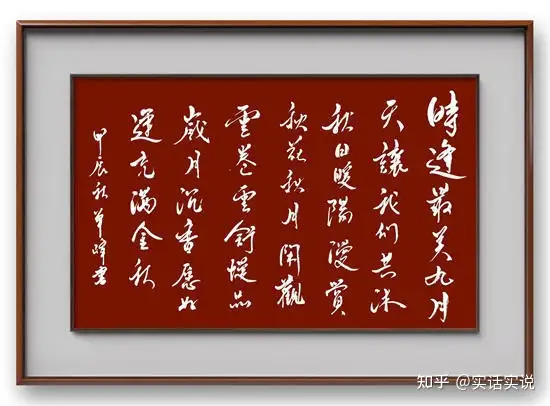 時逢最美九月
天讓我們共沐
秋日暖陽漫賞
秋花秋月閑觀
雲卷雲舒品
歲月沉香愿好
運充滿金秋
甲辰秋峰書
知乎 @实话实说